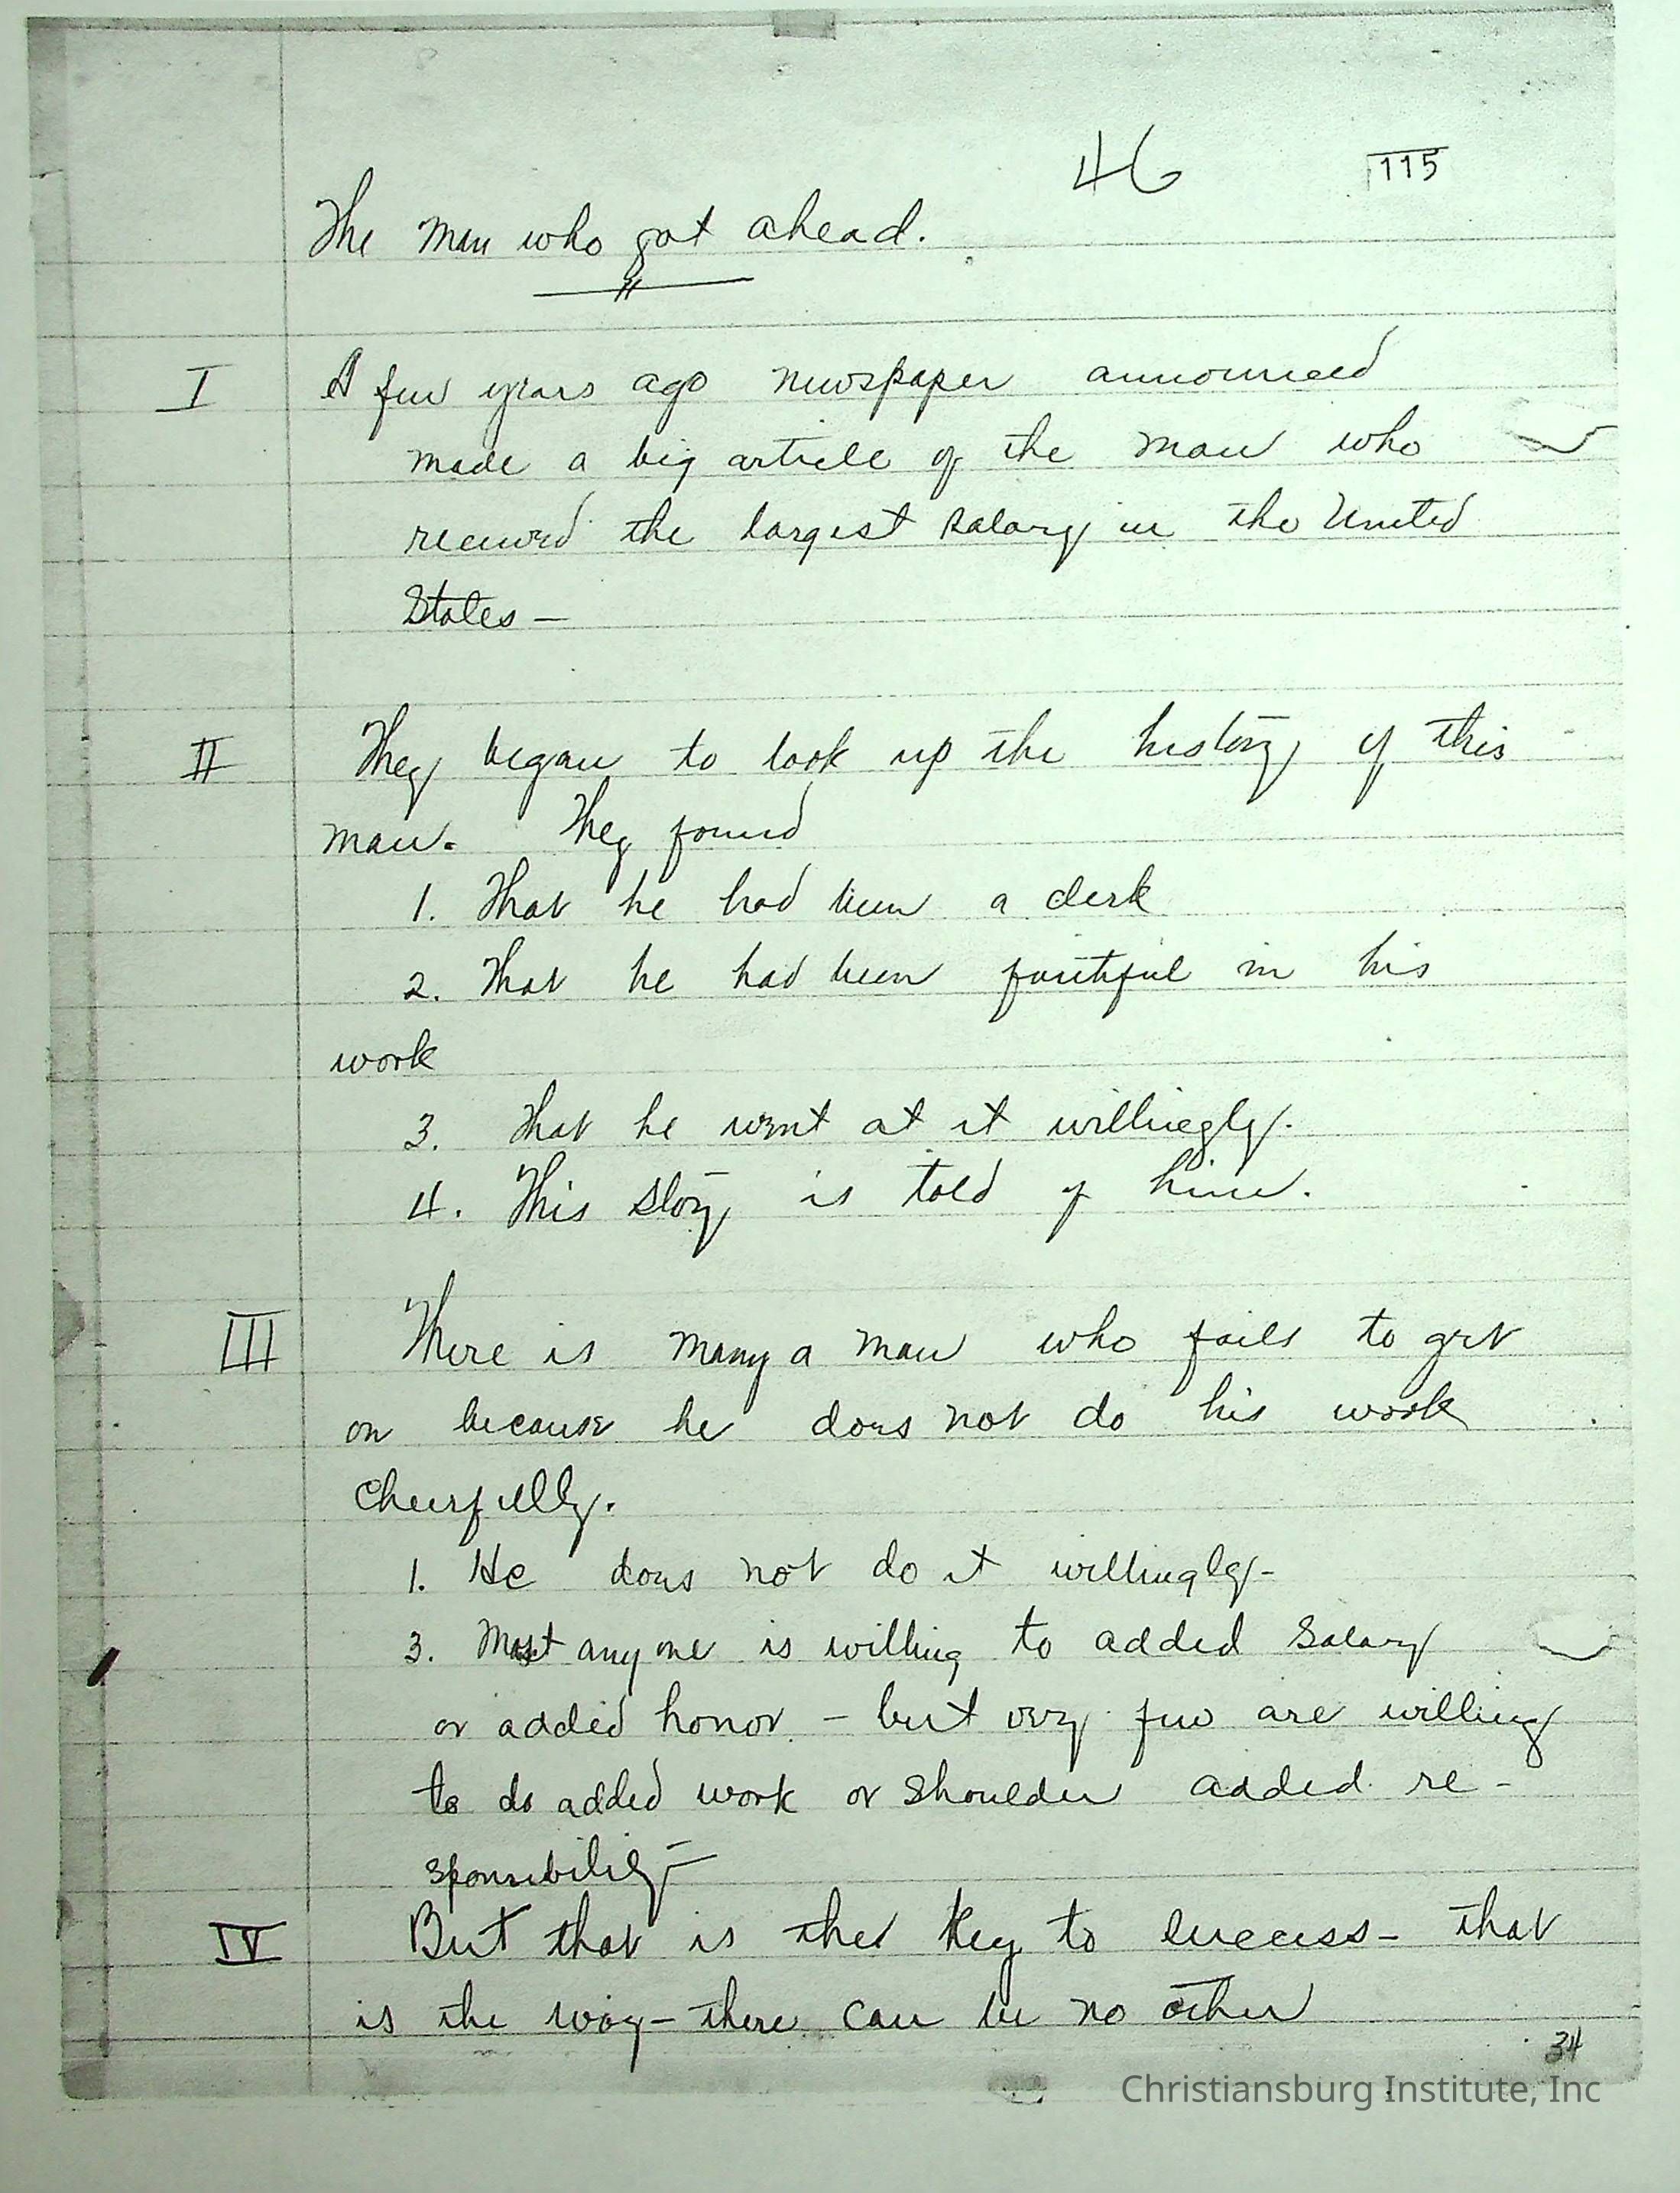 46
115
The man who got ahead.
I A few years ago newspaper announced
made a big article of the man who
received the largest salary in the United
States —
II They began to look up the history of this
man. They found
1. That he had been a clerk
2. That he had been faithful in his
work
3. That he went at it willingly.
4. This story is told of him.
III There is many a man who fails to get
on because he does not do his work
cheerfully.
1. He does not do it willingly -
3. Most any one is willing to added salary
or added honor - but very few are willing
to do added work or shoulder added re -
sponsibility —
IV But that is the key to success - that
is the way - there can be no other
34
Christiansburg Institute, Inc